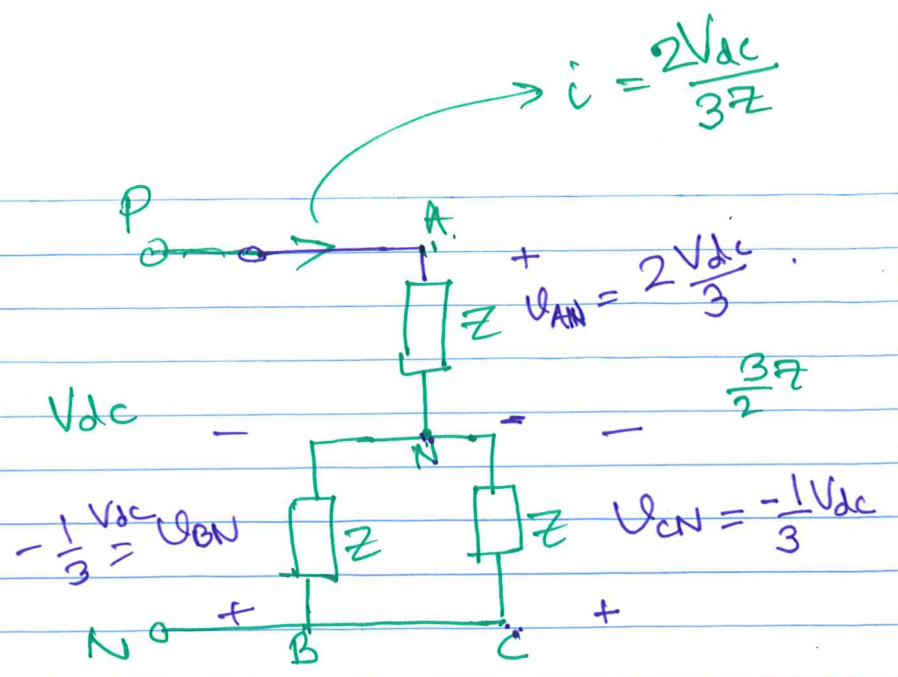 i = 2Vdc/3Z
P
A
+
Z
v_AN = 2Vdc/3
3/2 Z
Vdc
-
N
-
-
-1/3 Vdc = v_BN
Z
Z
v_CN = -1/3 Vdc
+
+
N
B
C